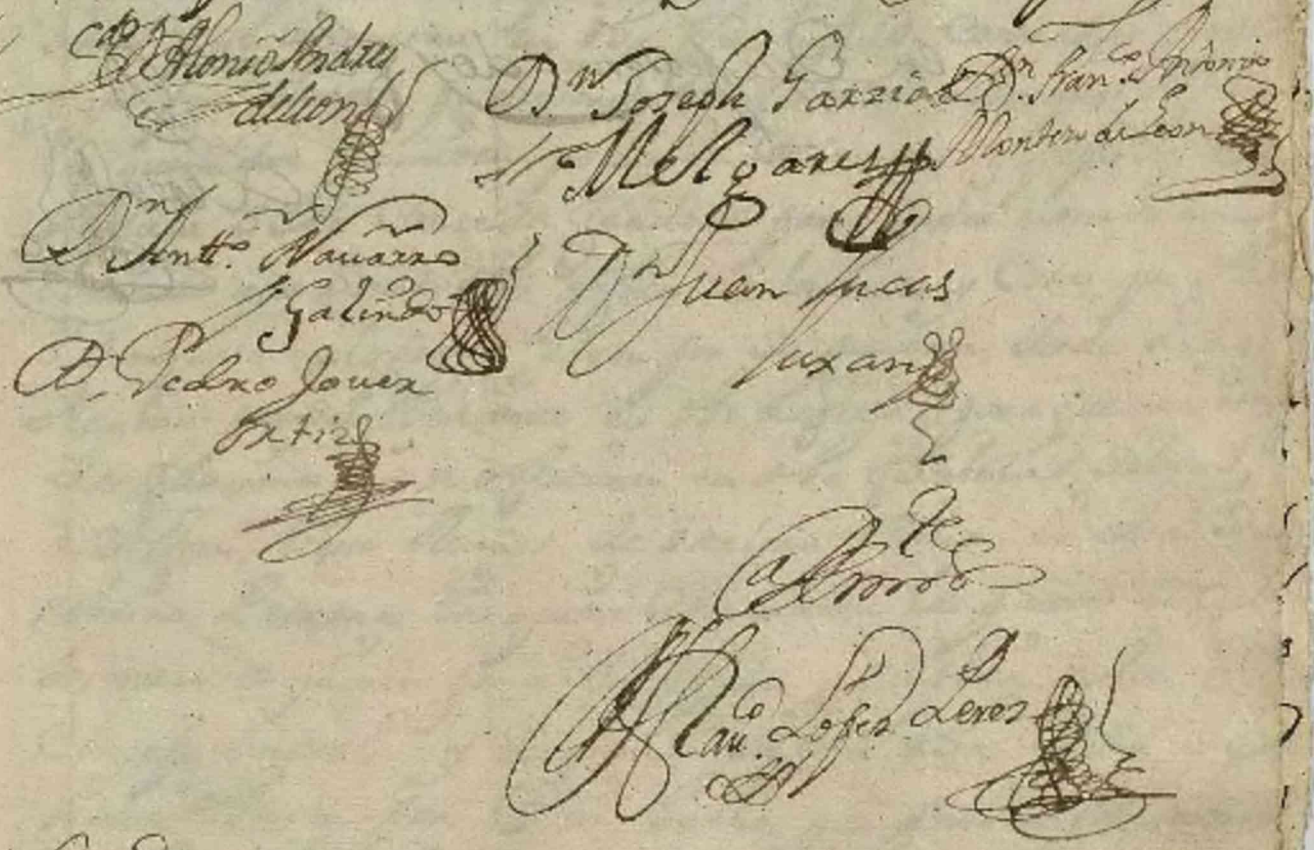 D. Alonso Andres
de Leon
Dn. Joseph Garzia
Melgares
Dn. Franco. Antonio
Montero de Leon
Dn. Antto. Navarro
Galindo
Dn. Juan Lucas
Juxan
D. Pedro Jouer
Ante
Lopez Perez